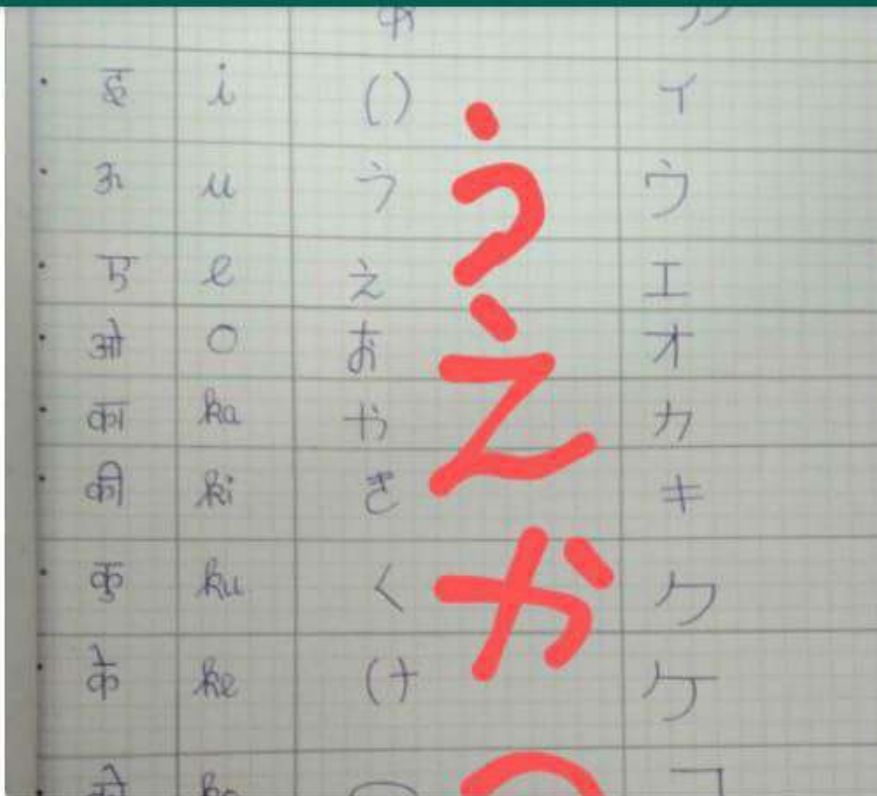 इ i い イ
उ u う ウ
ए e え エ
ओ o お オ
का ka か カ
की ki き キ
कु ku く ク
के ke け ケ
को ko
う
え
か